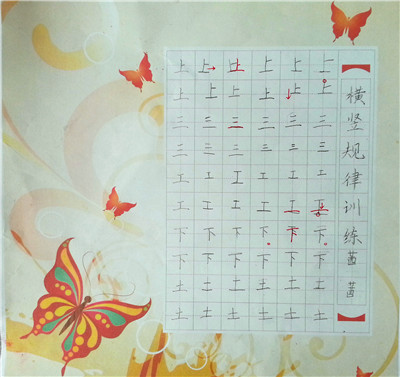 【横竖规律训练茜茜】
上上三三工工下下土土
上上三三工工下下土土
上上三三工工下下土土
上上三三工工下下土土
上上三三工工下下土土
上上三三工工下下土土